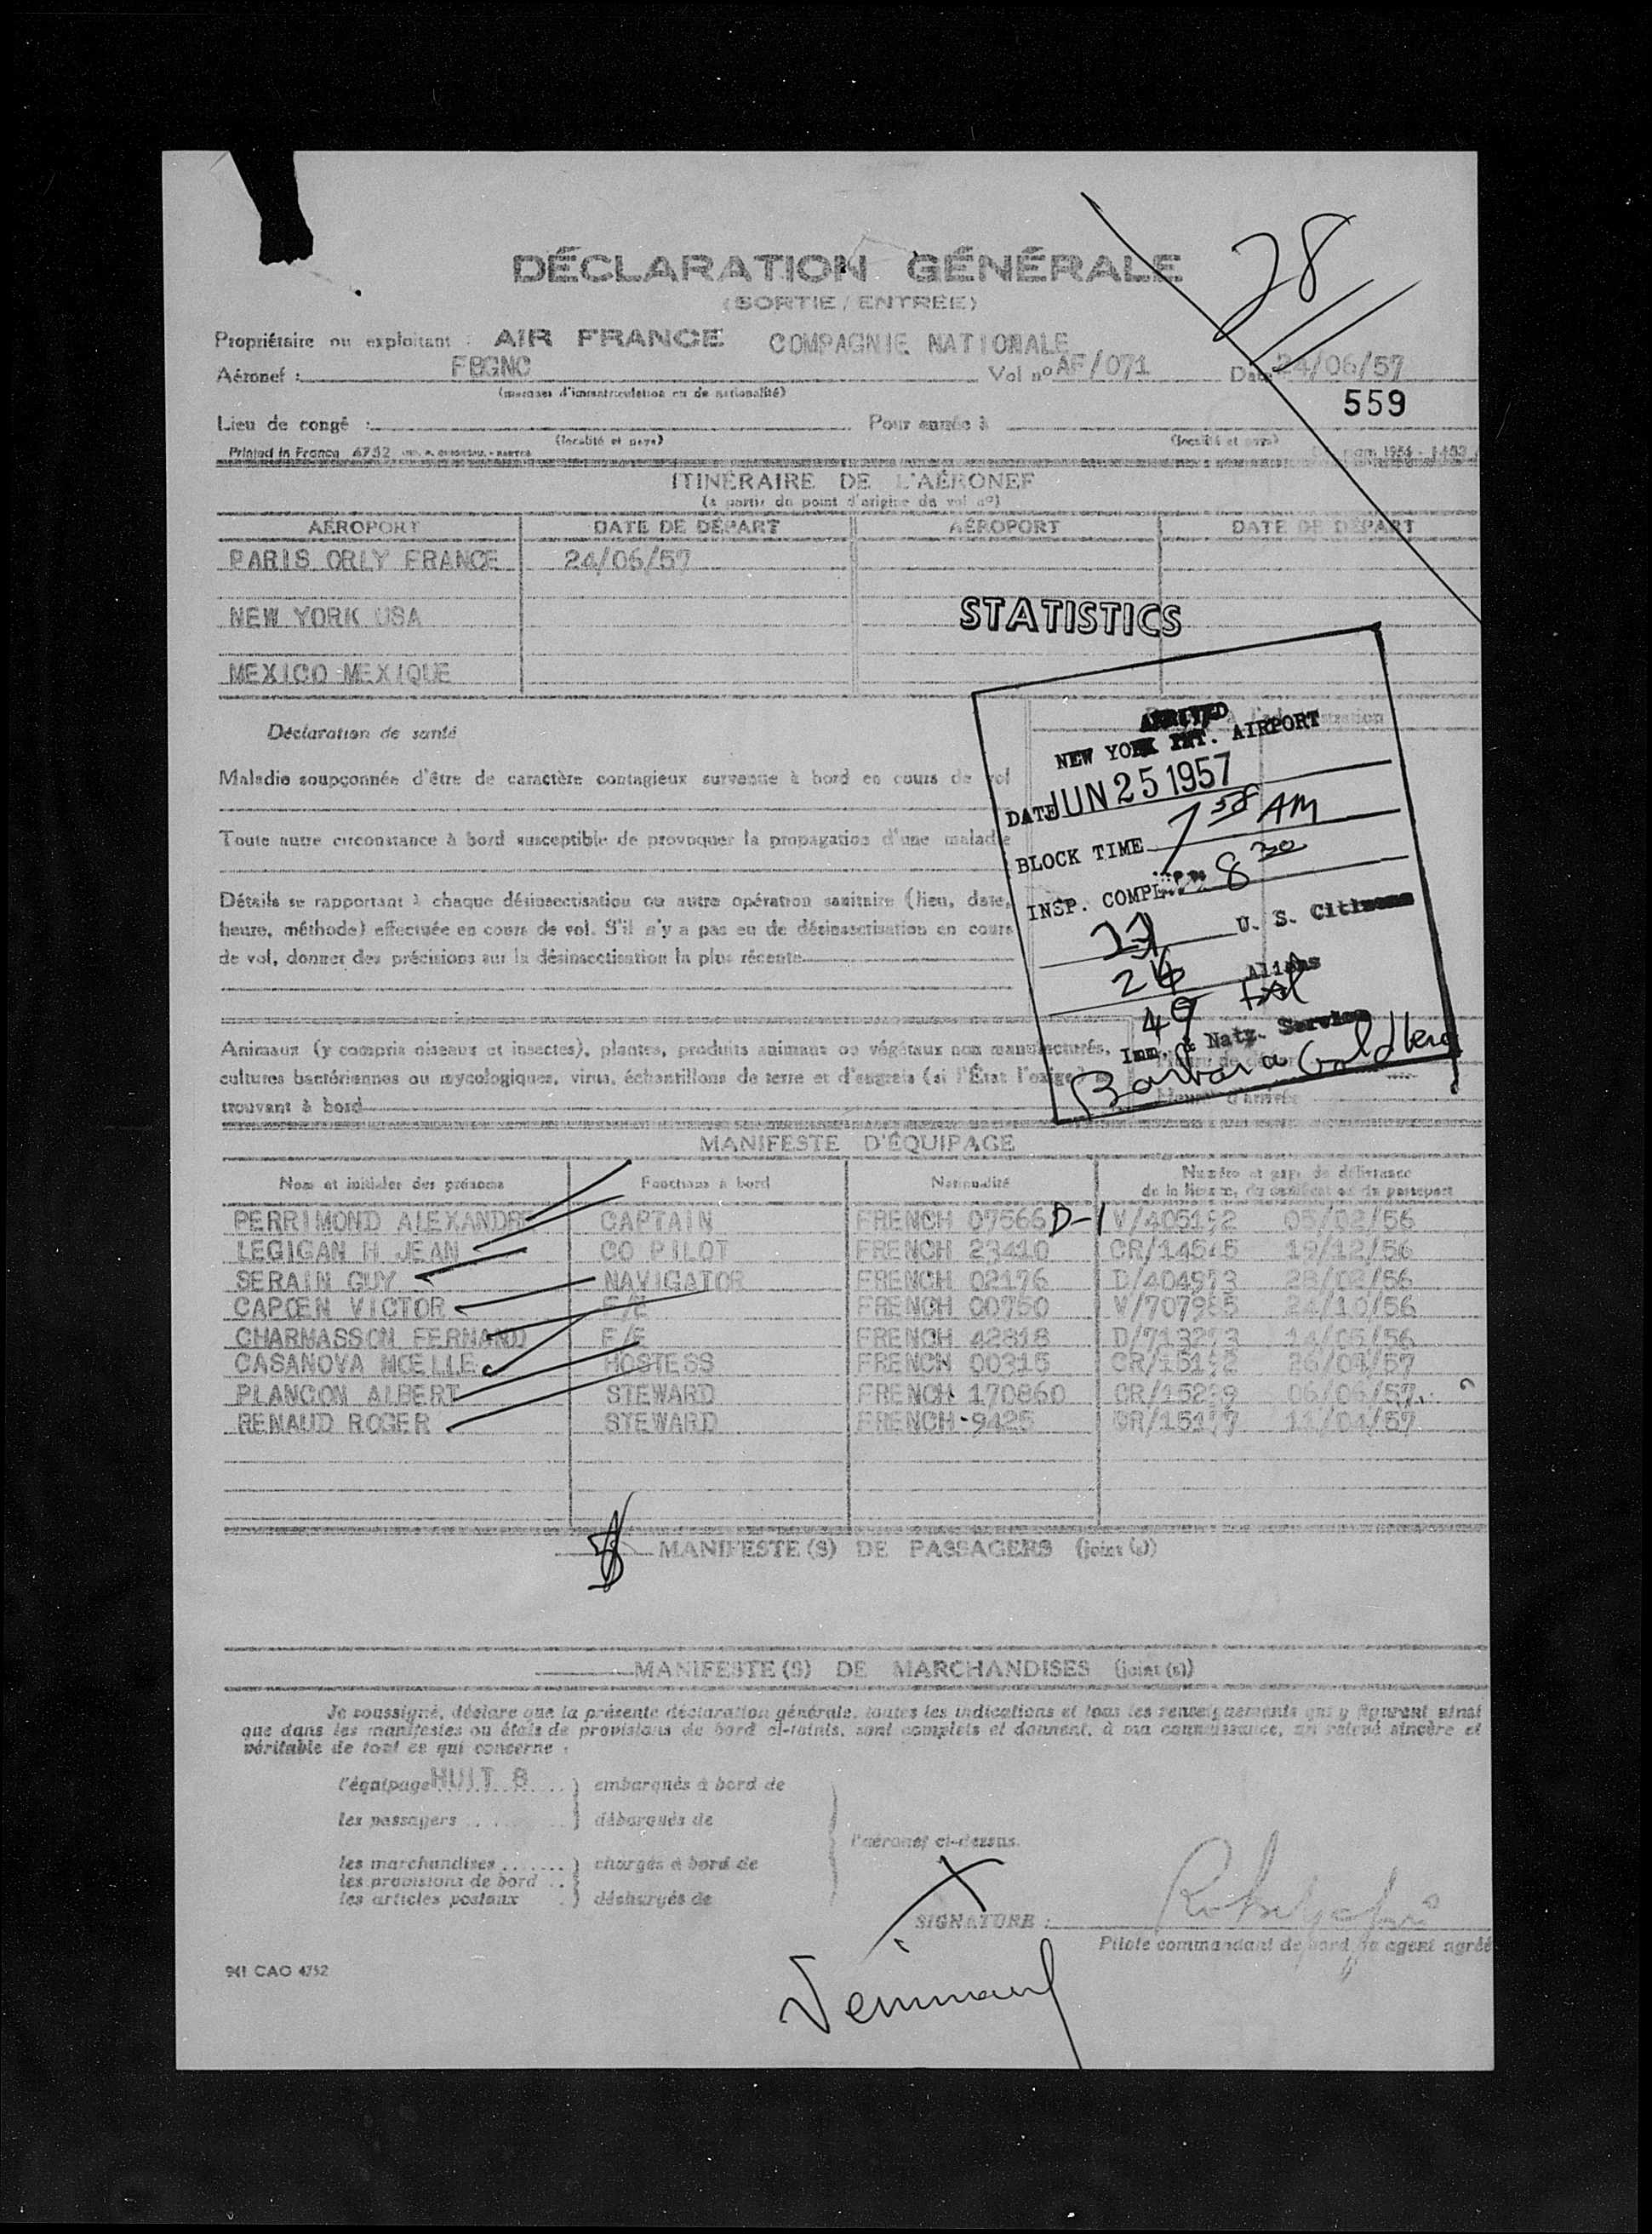 28
DÉCLARATION GÉNÉRALE
(SORTIE / ENTRÉE)
Propriétaire ou exploitant : AIR FRANCE COMPAGNIE NATIONALE
Aéronef : FBGNC Vol nº AF/071 Date 24/06/57
(marques d'immatriculation et de nationalité)
559
Lieu de congé : Pour entrée à
(localité et pays) (localité et pays)
Printed in France 4752
ITINÉRAIRE DE L'AÉRONEF
(à partir du point d'origine du vol nº)
AÉROPORT DATE DE DÉPART AÉROPORT DATE DE DÉPART
PARIS ORLY FRANCE 24/06/57
NEW YORK USA
STATISTICS
MEXICO MEXIQUE
ARRIVED
NEW YORK INT. AIRPORT
DATE JUN 25 1957
BLOCK TIME 7 58 AM
INSP. COMPL. 8 30
U. S. Citizens
26 Aliens
49
Imm. & Natz. Service
Barbara Goldberg
Déclaration de santé
Maladie soupçonnée d'être de caractère contagieux survenue à bord en cours de vol
Toute autre circonstance à bord susceptible de provoquer la propagation d'une maladie
Détails se rapportant à chaque désinsectisation ou autre opération sanitaire (lieu, date,
heure, méthode) effectuée en cours de vol. S'il n'y a pas eu de désinsectisation en cours
de vol, donner des précisions sur la désinsectisation la plus récente
Animaux (y compris oiseaux et insectes), plantes, produits animaux ou végétaux non manufacturés,
cultures bactériennes ou mycologiques, virus, échantillons de terre et d'engrais (si l'État l'exige)
trouvant à bord
Heure d'arrivée
MANIFESTE D'ÉQUIPAGE
Nom et initiales des prénoms Fonctions à bord Nationalité Numéro et pays de délivrance
de la licence, du certificat ou du passeport
PERRIMOND ALEXANDRE CAPTAIN FRENCH 07566 D-1 V/405192 05/02/56
LEGIGAN H JEAN CO PILOT FRENCH 23410 CR/14515 19/12/56
SERAIN GUY NAVIGATOR FRENCH 02176 D/404973 28/02/56
CAPOEN VICTOR F/E FRENCH 00750 V/707985 24/10/56
CHARMASSON FERNAND F/E FRENCH 42818 D/713273 14/05/56
CASANOVA NOELLE HOSTESS FRENCH 00315 CR/15192 26/04/57
PLANCON ALBERT STEWARD FRENCH 170860 CR/15239 06/06/57
RENAUD ROGER STEWARD FRENCH 9425 CR/15177 11/04/57
MANIFESTE(S) DE PASSAGERS (joint (s))
MANIFESTE(S) DE MARCHANDISES (joint (s))
Je soussigné, déclare que la présente déclaration générale, toutes les indications et tous les renseignements qui y figurent ainsi
que dans les manifestes ou états de provisions de bord ci-joints, sont complets et donnent, à ma connaissance, un relevé sincère et
véritable de tout ce qui concerne :
l'équipage HUIT 8 embarqués à bord de
les passagers débarqués de
l'aéronef ci-dessus.
les marchandises chargés à bord de
les provisions de bord
les articles postaux déchargés de
X
SIGNATURE :
Pilote commandant de bord, ou agent agréé
941 CAO 4752